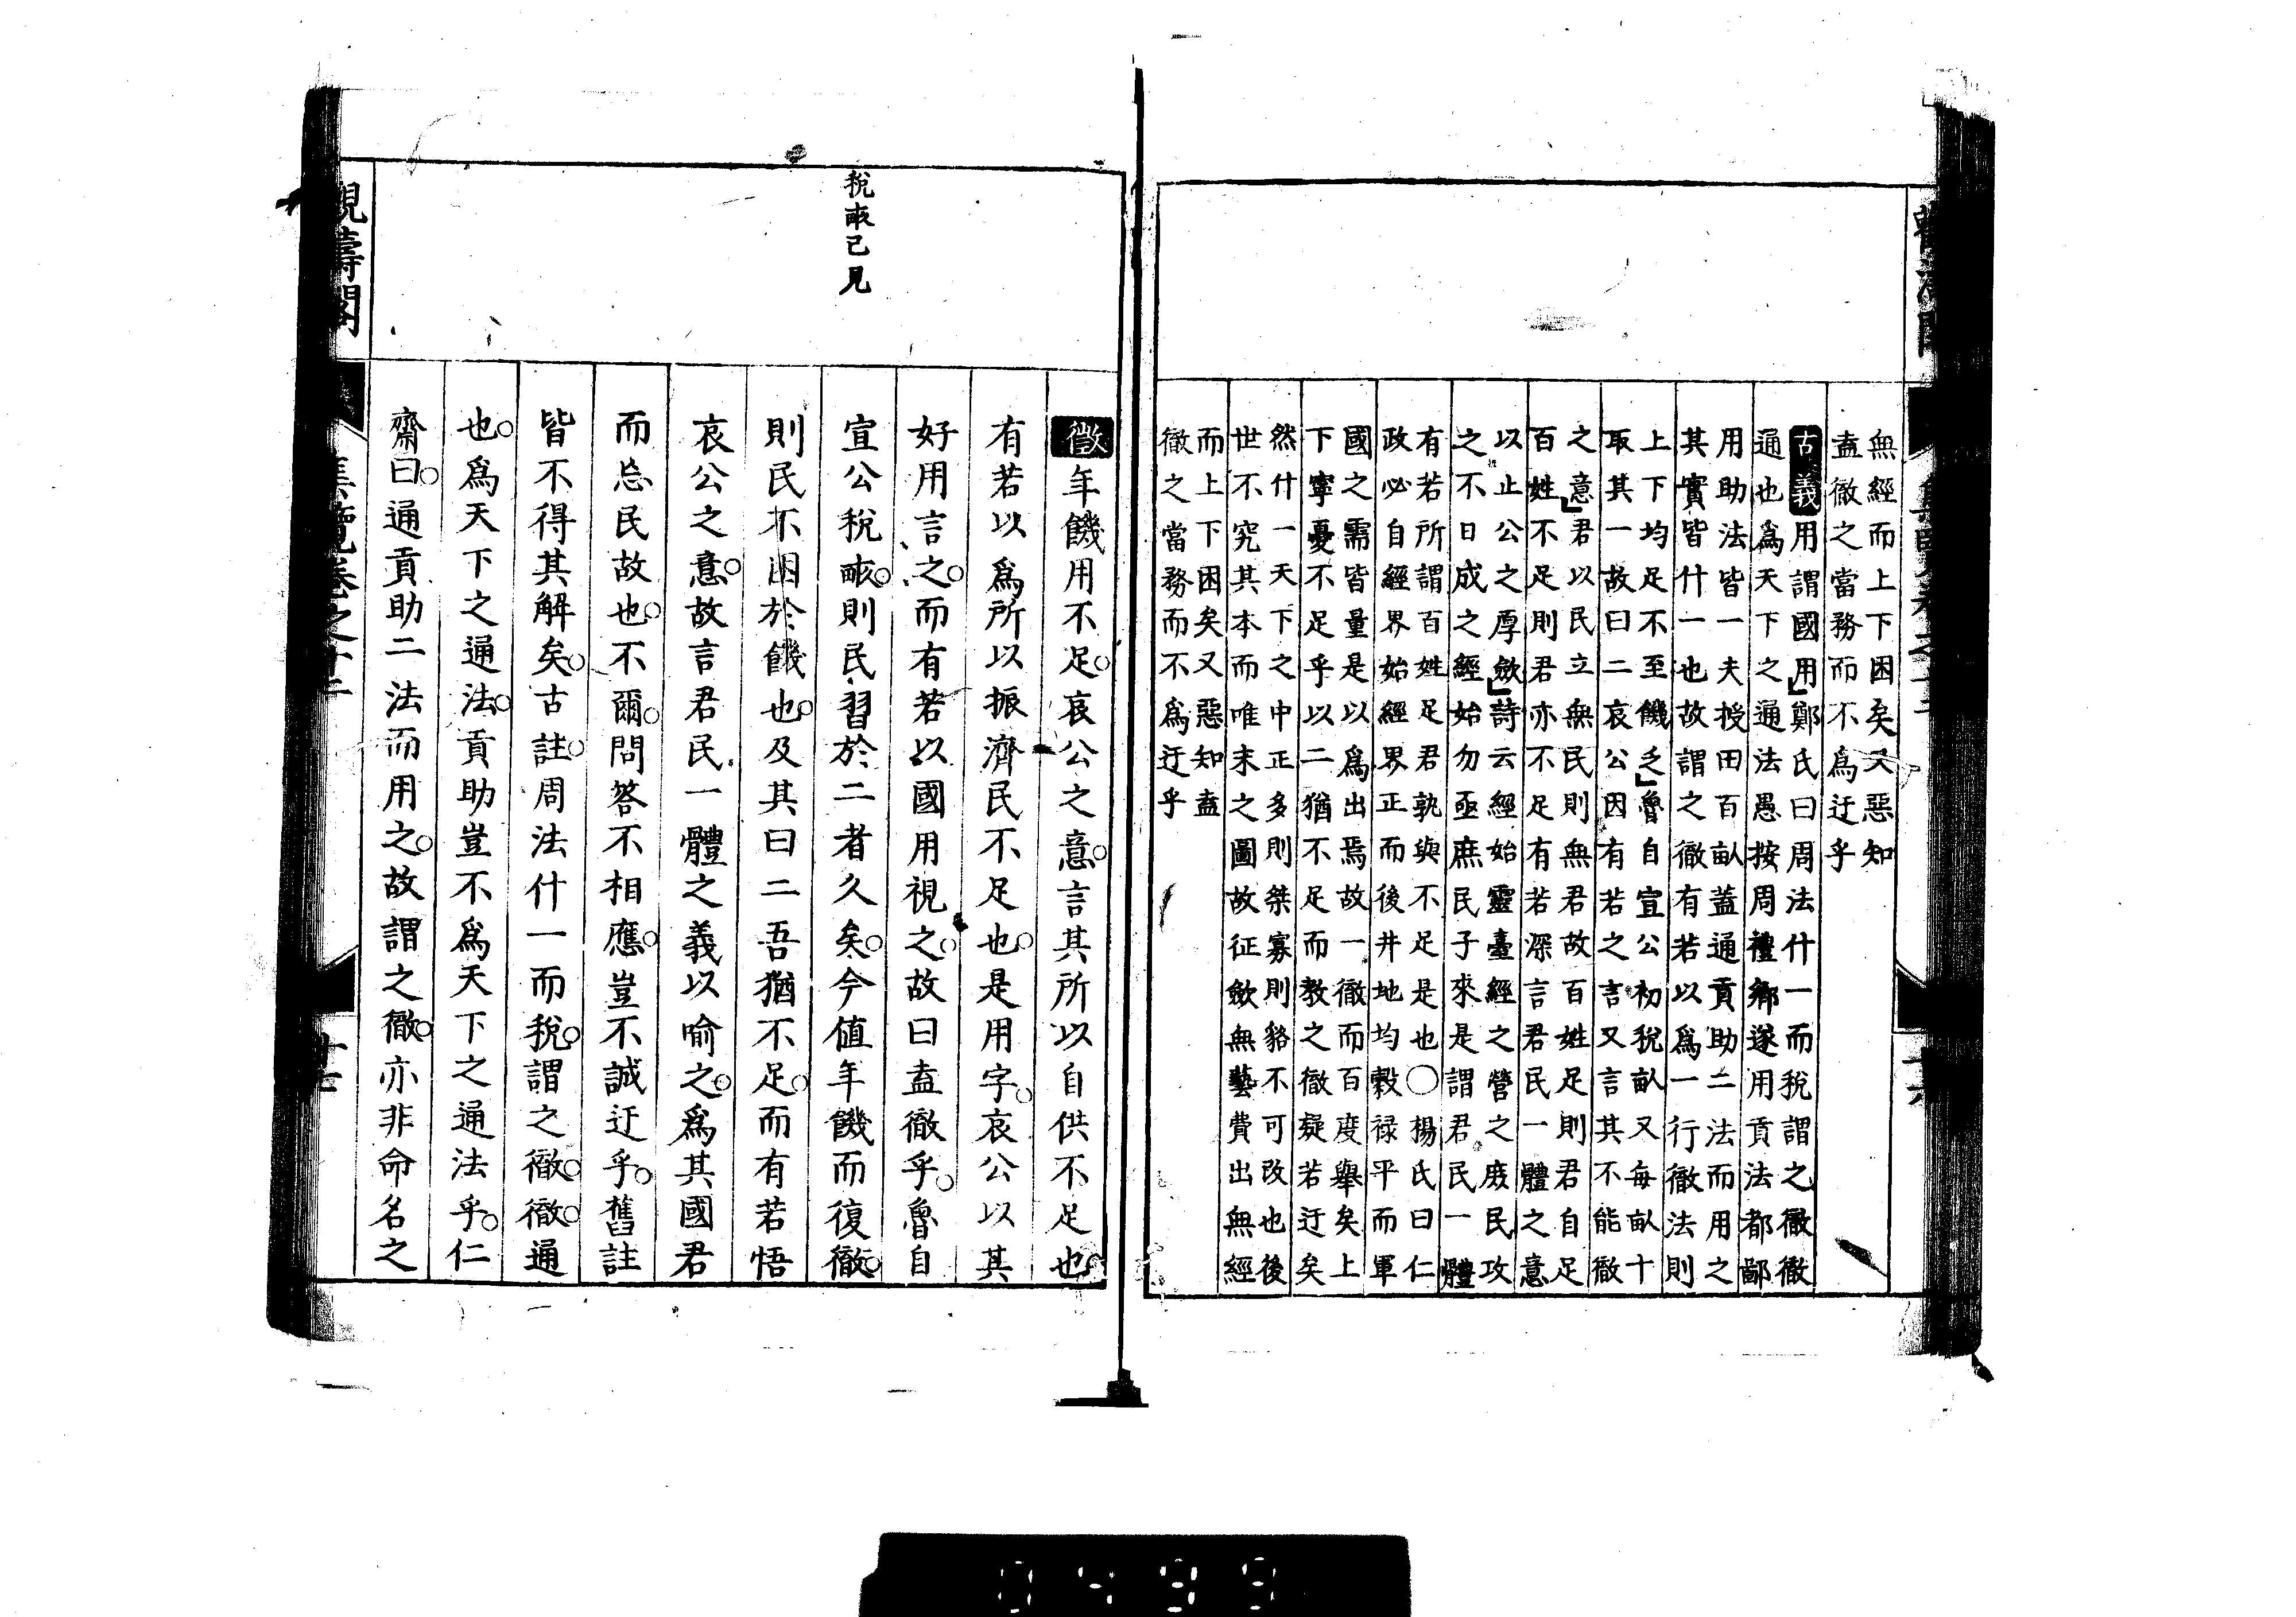 無經而上下困矣又惡知
盍徹之當務而不爲迂乎
古義 用謂國用」鄭氏曰周法什一而稅謂之徹徹
通也爲天下之通法愚按周禮鄉遂用貢法都鄙
用助法皆一夫授田百畝蓋通貢助二法而用之
其實皆什一也故謂之徹有若以爲一行徹法則
上下均足不至饑乏」魯自宣公初稅畝又每畝十
取其一故曰二哀公因有若之言又言其不能徹
之意」君以民立無民則無君故百姓足則君自足
百姓不足則君亦不足有若深言君民一體之意
以止公之厚斂」詩云經始靈臺經之營之庶民攻
之不日成之經始勿亟庶民子來是謂君民一體
有若所謂百姓足君孰與不足是也○楊氏曰仁
政必自經界始經界正而後井地均穀祿平而軍
國之需皆量是以爲出焉故一徹而百度舉矣上
下寧憂不足乎以二猶不足而教之徹疑若迂矣
然什一天下之中正多則桀寡則貉不可改也後
世不究其本而唯末之圖故征斂無藝費出無經
而上下困矣又惡知盍
徹之當務而不爲迂乎
稅畝已見
徵 年饑用不足。哀公之意。言其所以自供不足也。
有若以爲所以振濟民不足也。是用字。哀公以其
好用言之。而有若以國用視之。故曰盍徹乎。魯自
宣公稅畝。則民習於二者久矣。今値年饑而復徹。
則民不困於饑也。及其曰二吾猶不足。而有若悟
哀公之意。故言君民一體之義以喻之。爲其國君
而忘民故也。不爾。問答不相應。豈不誠迂乎。舊註
皆不得其解矣。古註。周法什一而稅。謂之徹。徹。通
也。爲天下之通法。貢助豈不爲天下之通法乎。仁
齋曰。通貢助二法而用之。故謂之徹。亦非命名之
觀濤閣
集覽卷之十二
十七